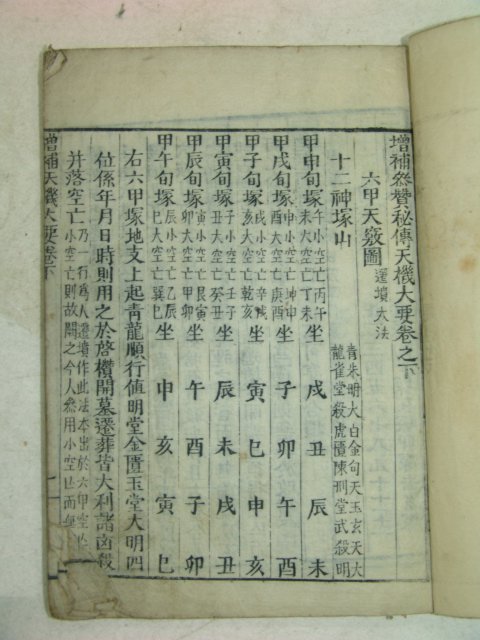 增補叅贊秘傳天機大要卷之下
六甲天竅圖 遷墳大法
十二神塚山 青朱明大白金句天玉玄天大
龍雀堂殺虎匱陳刑堂武殺明
甲申旬塚 午小空亡丙午 未大空亡丁未 坐 戌 丑 辰 未
甲戌旬塚 申小空亡坤申 酉大空亡庚酉 坐 子 卯 午 酉
甲子旬塚 戌小空亡辛戌 亥大空亡乾亥 坐 寅 巳 申 亥
甲寅旬塚 子小空亡壬子 丑大空亡癸丑 坐 辰 未 戌 丑
甲辰旬塚 寅小空亡艮寅 卯大空亡甲卯 坐 午 酉 子 卯
甲午旬塚 辰小空亡乙辰 巳大空亡巽巳 坐 申 亥 寅 巳
右六甲塚地支上起青龍順行値明堂金匱玉堂大明四
位係年月日時則用之於啓欑開墓遷葬皆大利諸凶殺
并落空亡 乃一行爲人遷墳作此法本出於六甲空亡
小空亡則故闕之今人叅用小空亡而
增補天機大要卷下